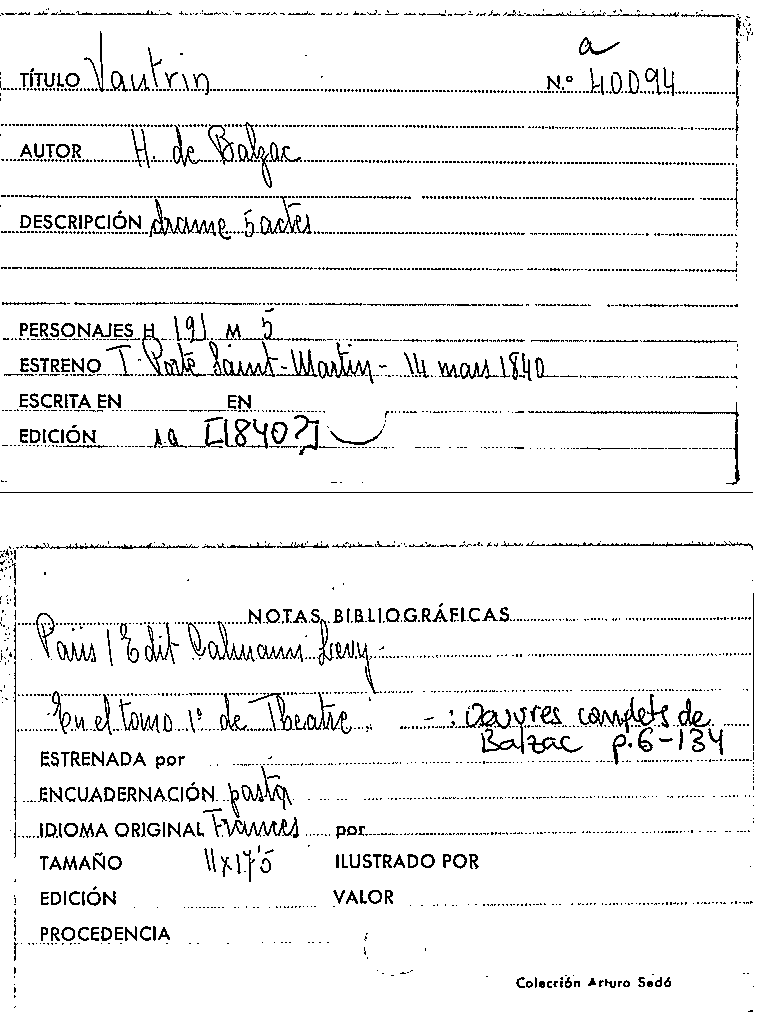 a
TÍTULO Vautrin N.º 40094
AUTOR H. de Balzac
DESCRIPCIÓN drame 5 actes
PERSONAJES H 19 M 5
ESTRENO T. Porte Saint-Martin - 14 mars 1840
ESCRITA EN EN
EDICIÓN [1840?]
NOTAS BIBLIOGRÁFICAS
Paris / Edit Calmann Levy -
En el tomo 1º de Theatre. - : Oeuvres complets de
Balzac p. 6-134
ESTRENADA por
ENCUADERNACIÓN pasta
IDIOMA ORIGINAL Frances por
TAMAÑO 11x17'5 ILUSTRADO POR
EDICIÓN VALOR
PROCEDENCIA
Colección Arturo Sedó